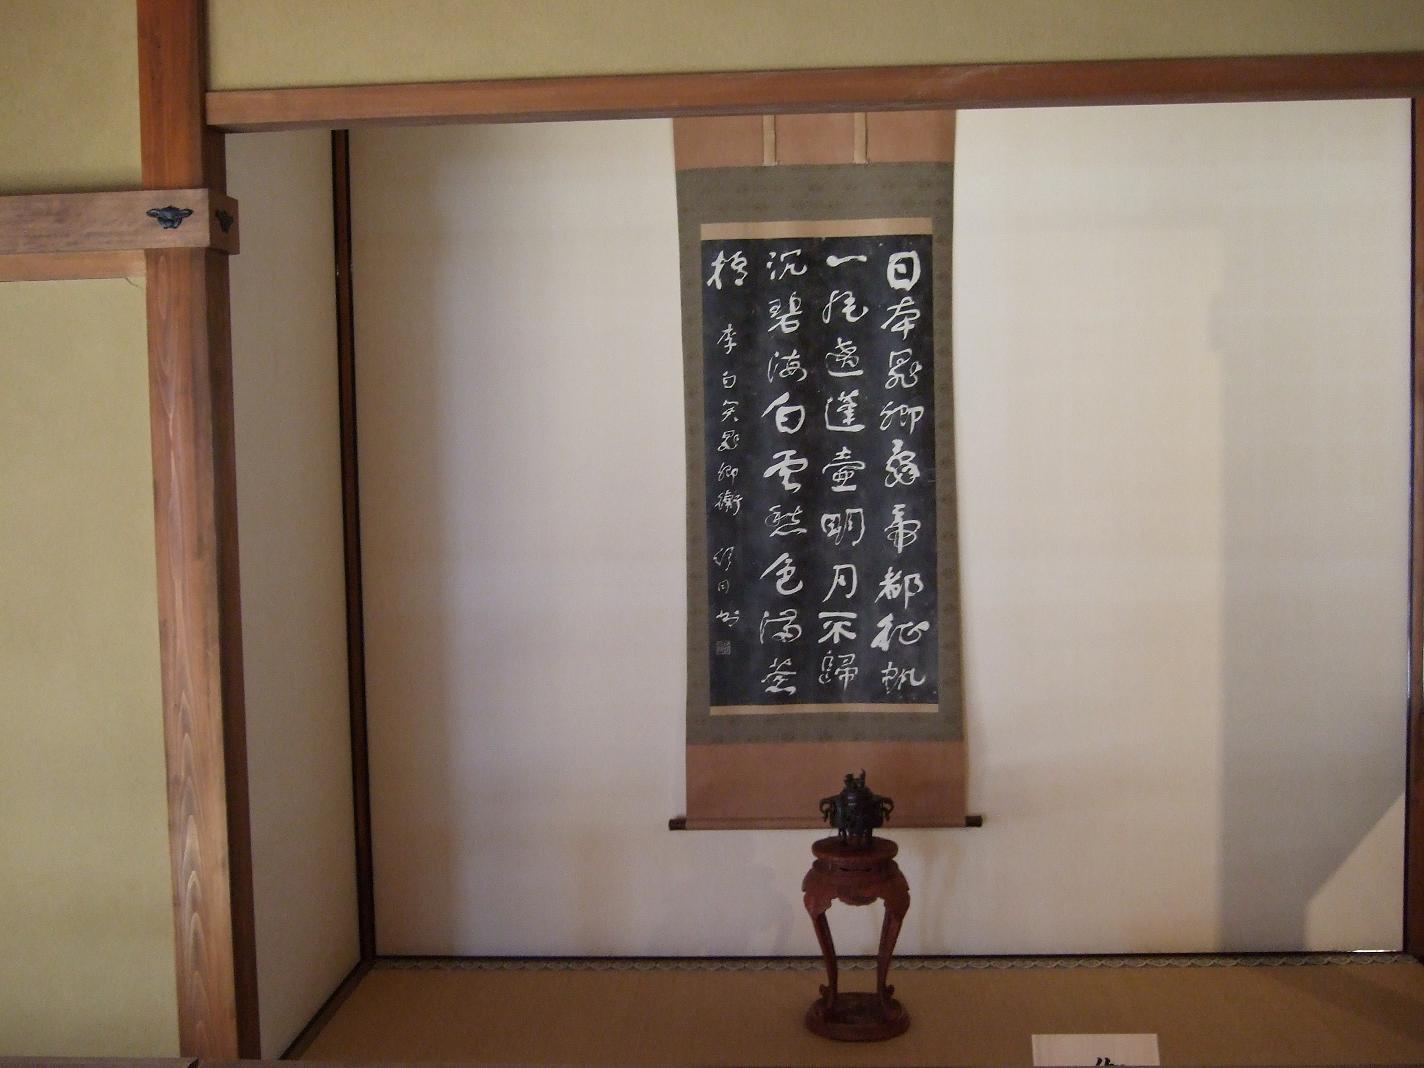 日本晁卿辭帝都征帆
一片遶蓬壺明月不歸
沉碧海白雲愁色滿蒼
梧 李白哭晁卿衡 舒同书